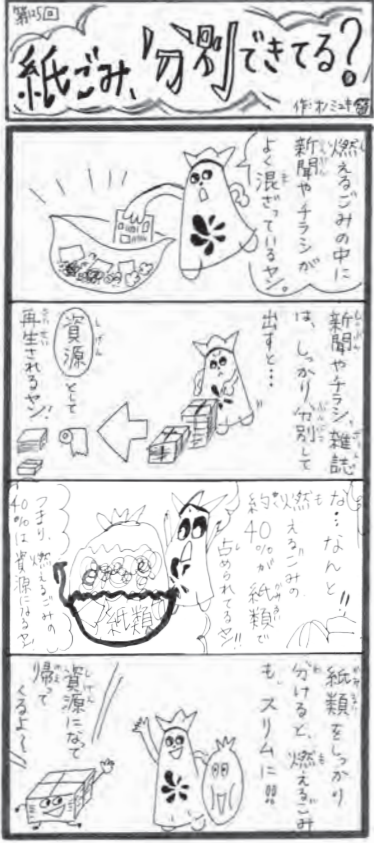 第125回
紙ごみ、「分別」できてる？
作:オノミユキ
燃えるごみの中に
新聞やチラシが
よく混ざっているヤン。
新聞やチラシ、雑誌
は、しっかり分別して
出すと…
資源として
再生されるヤン!!
な…なんと!!
燃えるごみの
約40%が紙類で
占められてるヤン!!
紙類
つまり、燃えるごみの
40%は資源になるヤン
紙類をしっかり
分けると、燃えるごみ
も、スリムに!!
資源になって
帰って
くるよ〜